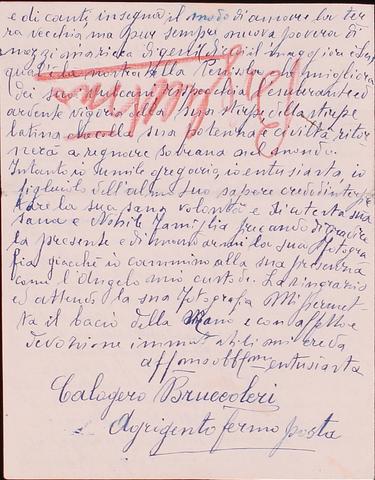 e di canti, insegna il modo di amare la ter
ra vecchia ma pur sempre nuova povera di
mezzi ma ricca di gentilezza il maggiore
qual è la nostra bella Penisola che migliora
dei suoi rispecchia l'esuberante ed
ardente vigoria della sua stirpe della stirpe
latina che colla sua potenza e civiltà ritor
nerà a regnare sovrana nel mondo.
Intanto io umile gregario, io entusiasta, io
figliuolo dell'almo suo sapere credo inter
tare la sua sana volontà e di
sana e Nobile Famiglia pregando di gradire
la presente e di mandarmi la sua Fotogra
fia giacchè io cammino alla sua presenza
come l'Angelo mio custode. La ringrazio
ed attendo la sua Fotografia. Mi permet
ta il bacio della Mano e con affetto e
devozione immutabili mi creda
entusiasta
Calogero Bruccoleri
Agrigento fermo posta